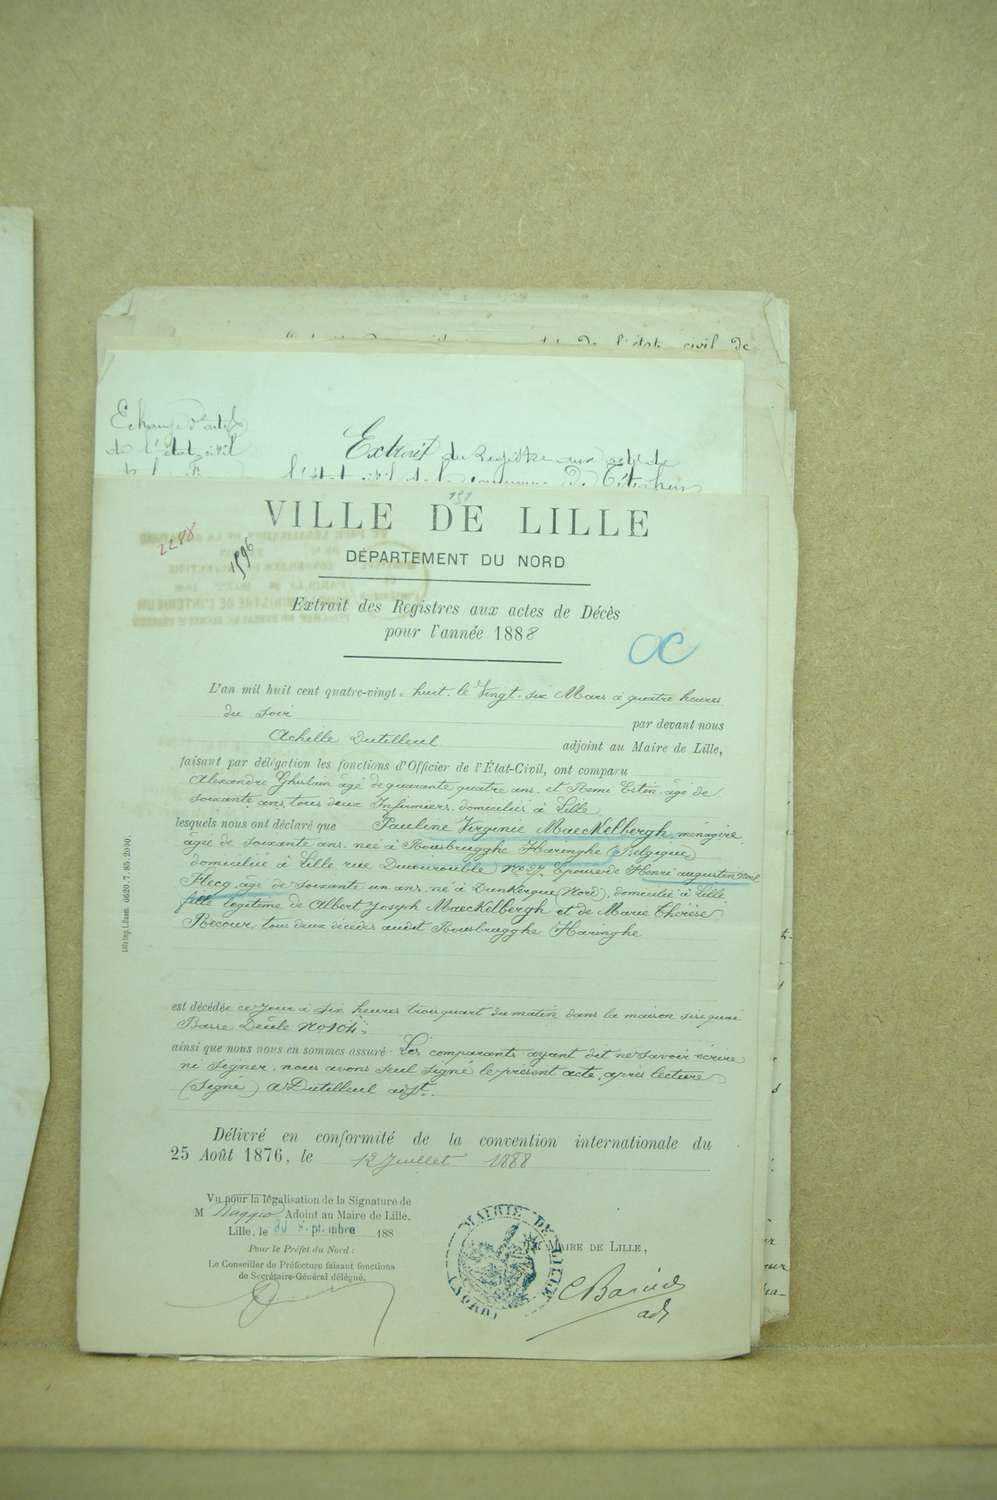 de l'état civil de
Echange d'actes
de l'état civil
Extrait du Registre aux actes de
l'état civil de la commune de
191
VILLE DE LILLE
DÉPARTEMENT DU NORD
2288
1596
Extrait des Registres aux actes de Décès
pour l'année 1888
L'an mil huit cent quatre-vingt-huit, le Vingt-six Mars à quatre heures
du soir par devant nous
Achille Dutilleul adjoint au Maire de Lille,
faisant par délégation les fonctions d'Officier de l'État-Civil, ont comparu
Alexandre Ghislain âgé de quarante quatre ans, et Remi Esten, âgé de
soixante ans, tous deux Infirmiers, domiciliés à Lille
lesquels nous ont déclaré que Pauline Virginie Maeckelbergh, ménagère
âgée de soixante ans, née à Rousbrugghe Haringhe (Belgique)
domiciliée à Lille rue No 27, Epouse de Henri augustin Noel
Flecq, âgé de soixante un ans, né à Dunkerque (Nord), domicilié à Lille
fille légitime de Albert Joseph Maeckelbergh et de Marie Thérèse
Recour, tous deux décédés audit Rousbrugghe Haringhe
est décédée ce jour à six heures trois quart du matin dans la maison sise quai
Basse Deûle No 104;
ainsi que nous nous en sommes assuré. Les comparants ayant dit ne savoir écrire
ni signer, nous avons seul signé le présent acte, après lecture
(Signé) A Dutilleul adjt.
Délivré en conformité de la convention internationale du
25 Août 1876, le 12 Juillet 1888
Vu pour la légalisation de la Signature de
M Adoint au Maire de Lille.
Lille, le 188
Pour le Préfet du Nord :
Le Conseiller de Préfecture faisant fonctions
de Secrétaire-Général délégué,
MAIRIE DE LILLE
(NORD)
MAIRE DE LILLE,
adj
Lille Imp. L. Danel. 6620. 7. 85. 2000.